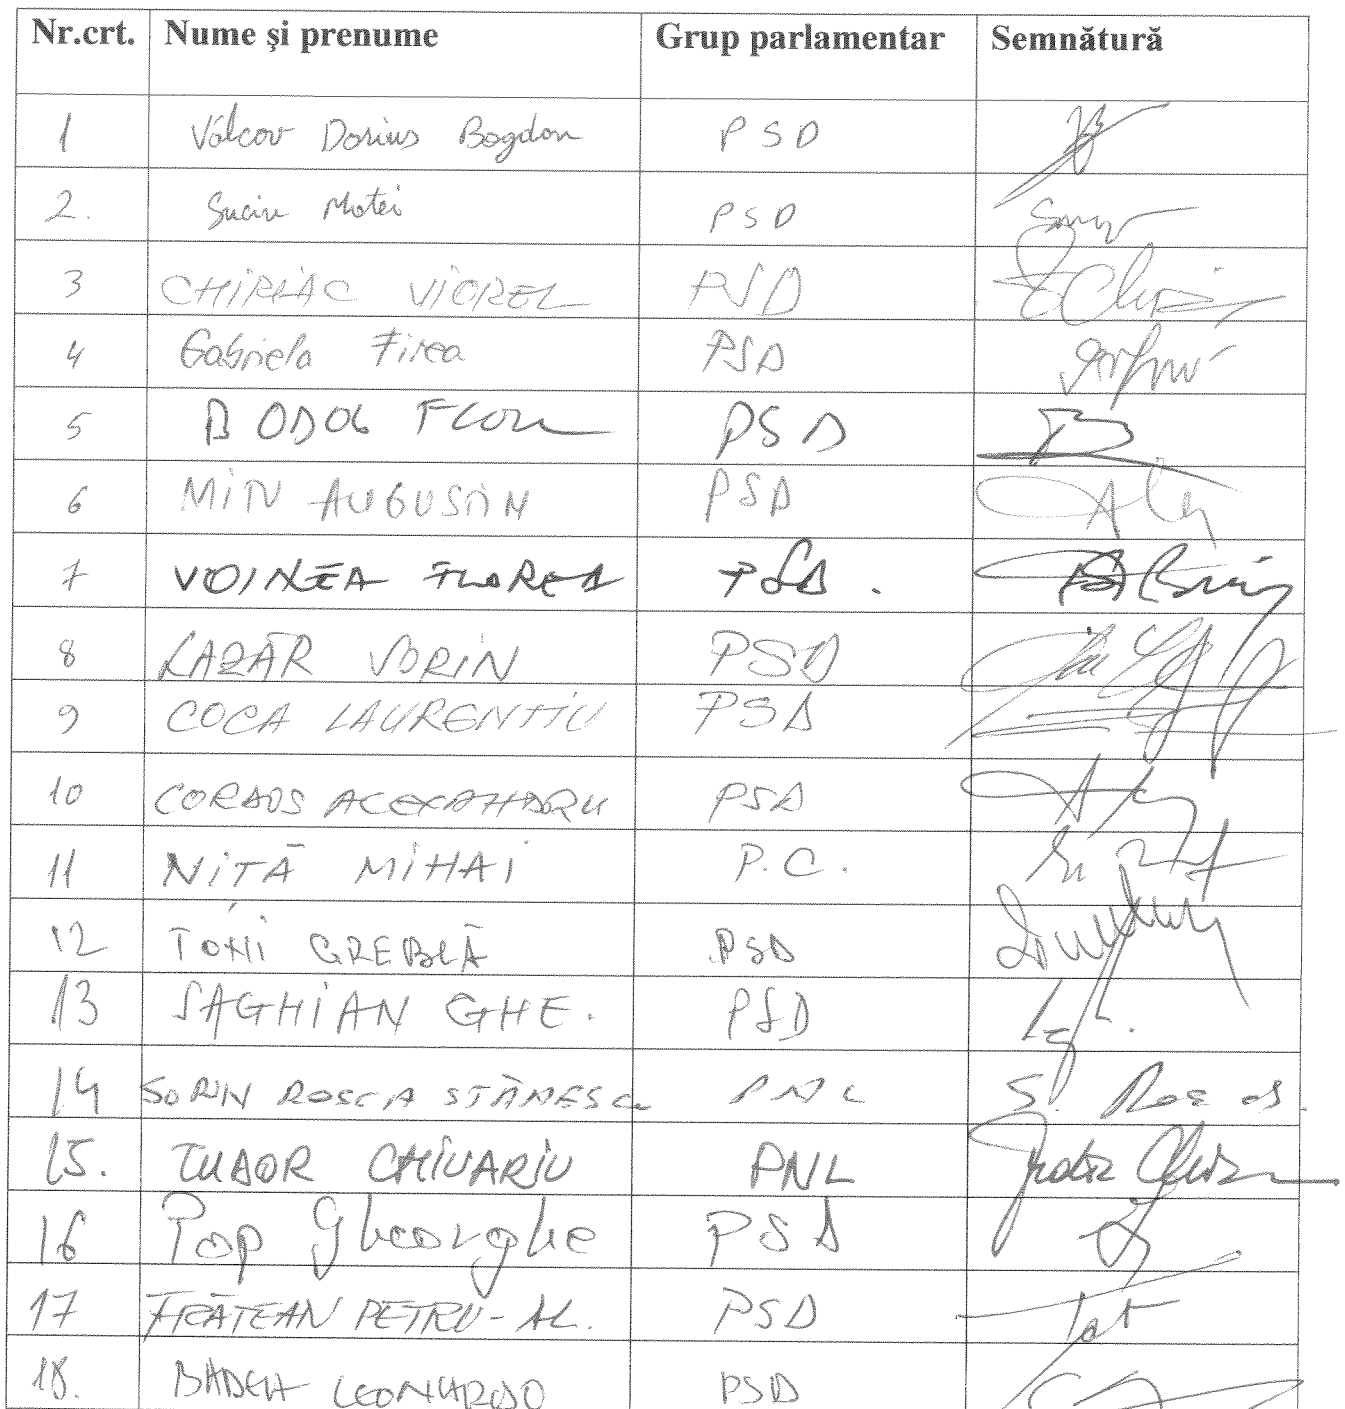 Nr.crt. Nume şi prenume Grup parlamentar Semnătură
1 Vâlcov Darius Bogdan PSD
2. Suciu Matei PSD
3 CHIRIAC VIOREL PSD
4 Gabriela Firea PSD
5 BODOG FLORIAN PSD
6 MIN AUGUSTIN PSD
7 VOINEA FLOREA PSD.
8 LAZĂR SORIN PSD
9 COCA LAURENȚIU PSD
10 CORDOȘ ALEXANDRU PSD
11 NIȚĂ MIHAI P.C.
12 TONI GREBLĂ PSD
13 SAGHIAN GHE. PSD
14 SORIN ROȘCA STĂNESCU PNL
15. TUDOR CHIUARIU PNL
16 Pop Gheorghe PSD
17 FRĂTEAN PETRU-AL. PSD
18. BADEA LEONARDO PSD